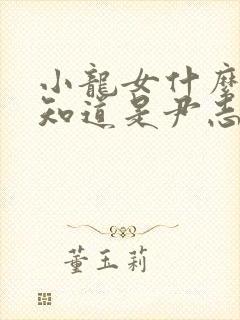 小龍女什麼
知道是尹志
董玉莉